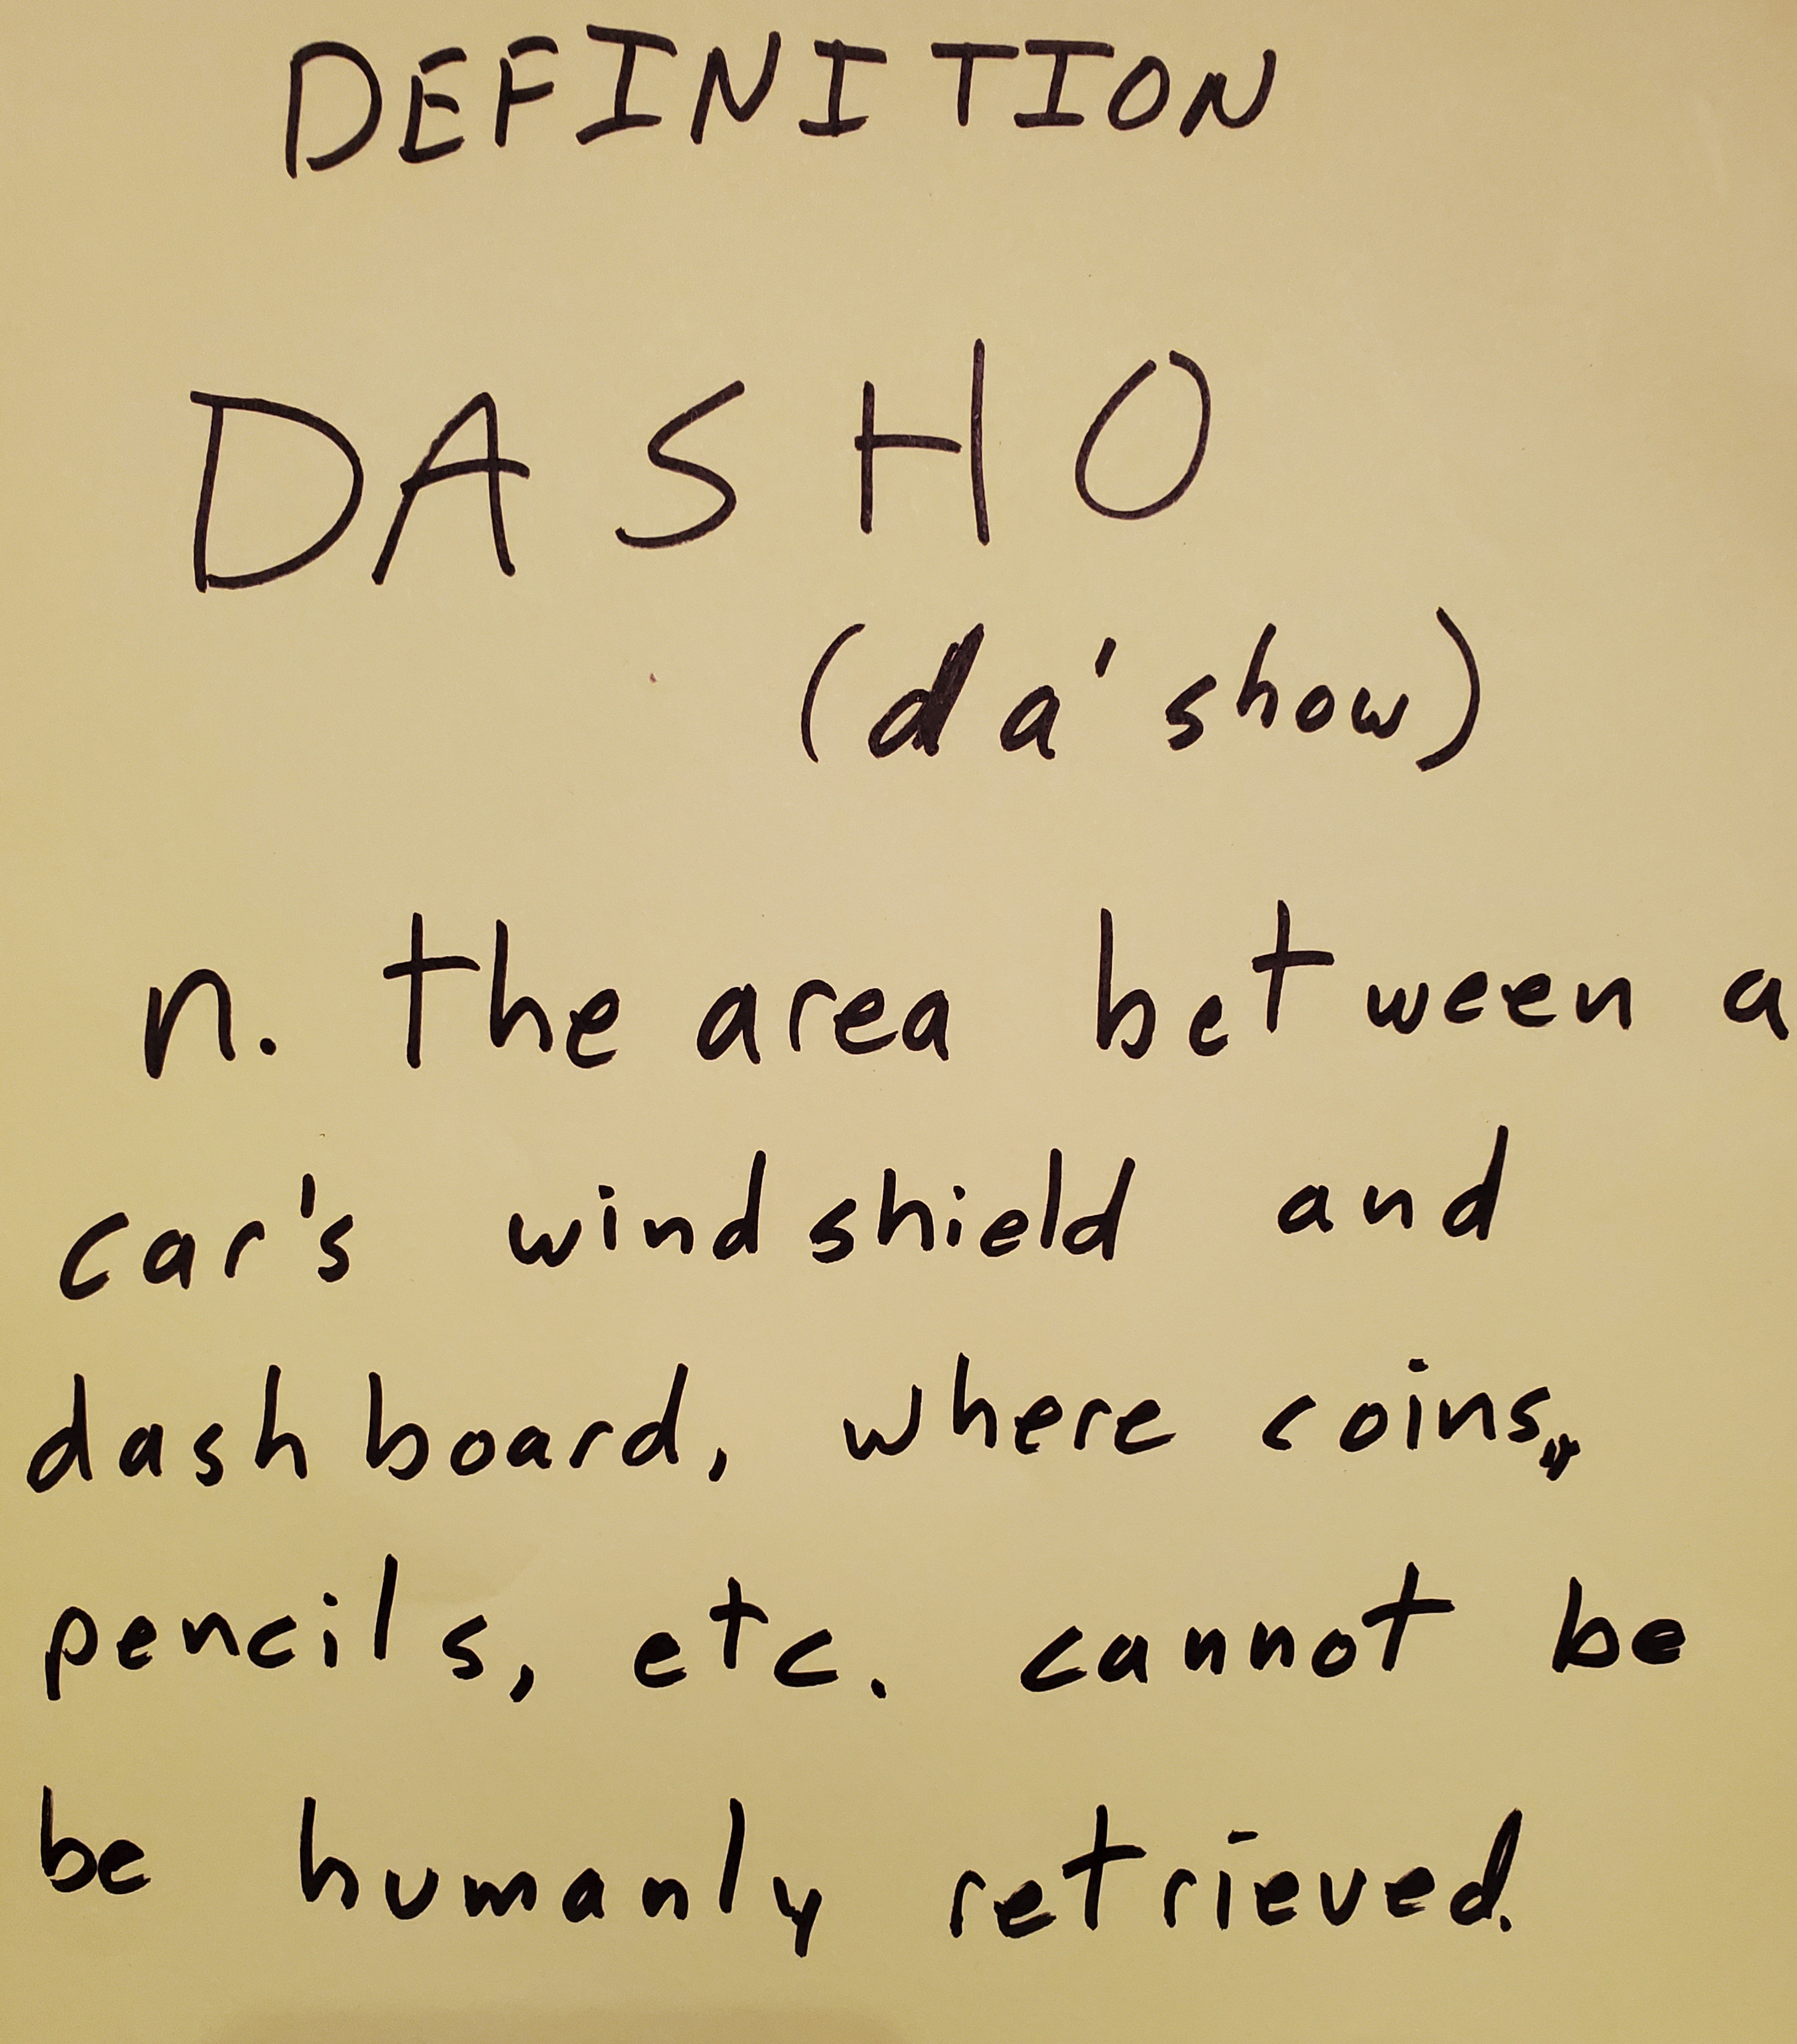 DEFINITION
DASHO
(da'show)
n. the area between a
car's windshield and
dashboard, where coins,
pencils, etc. cannot be
be humanly retrieved.